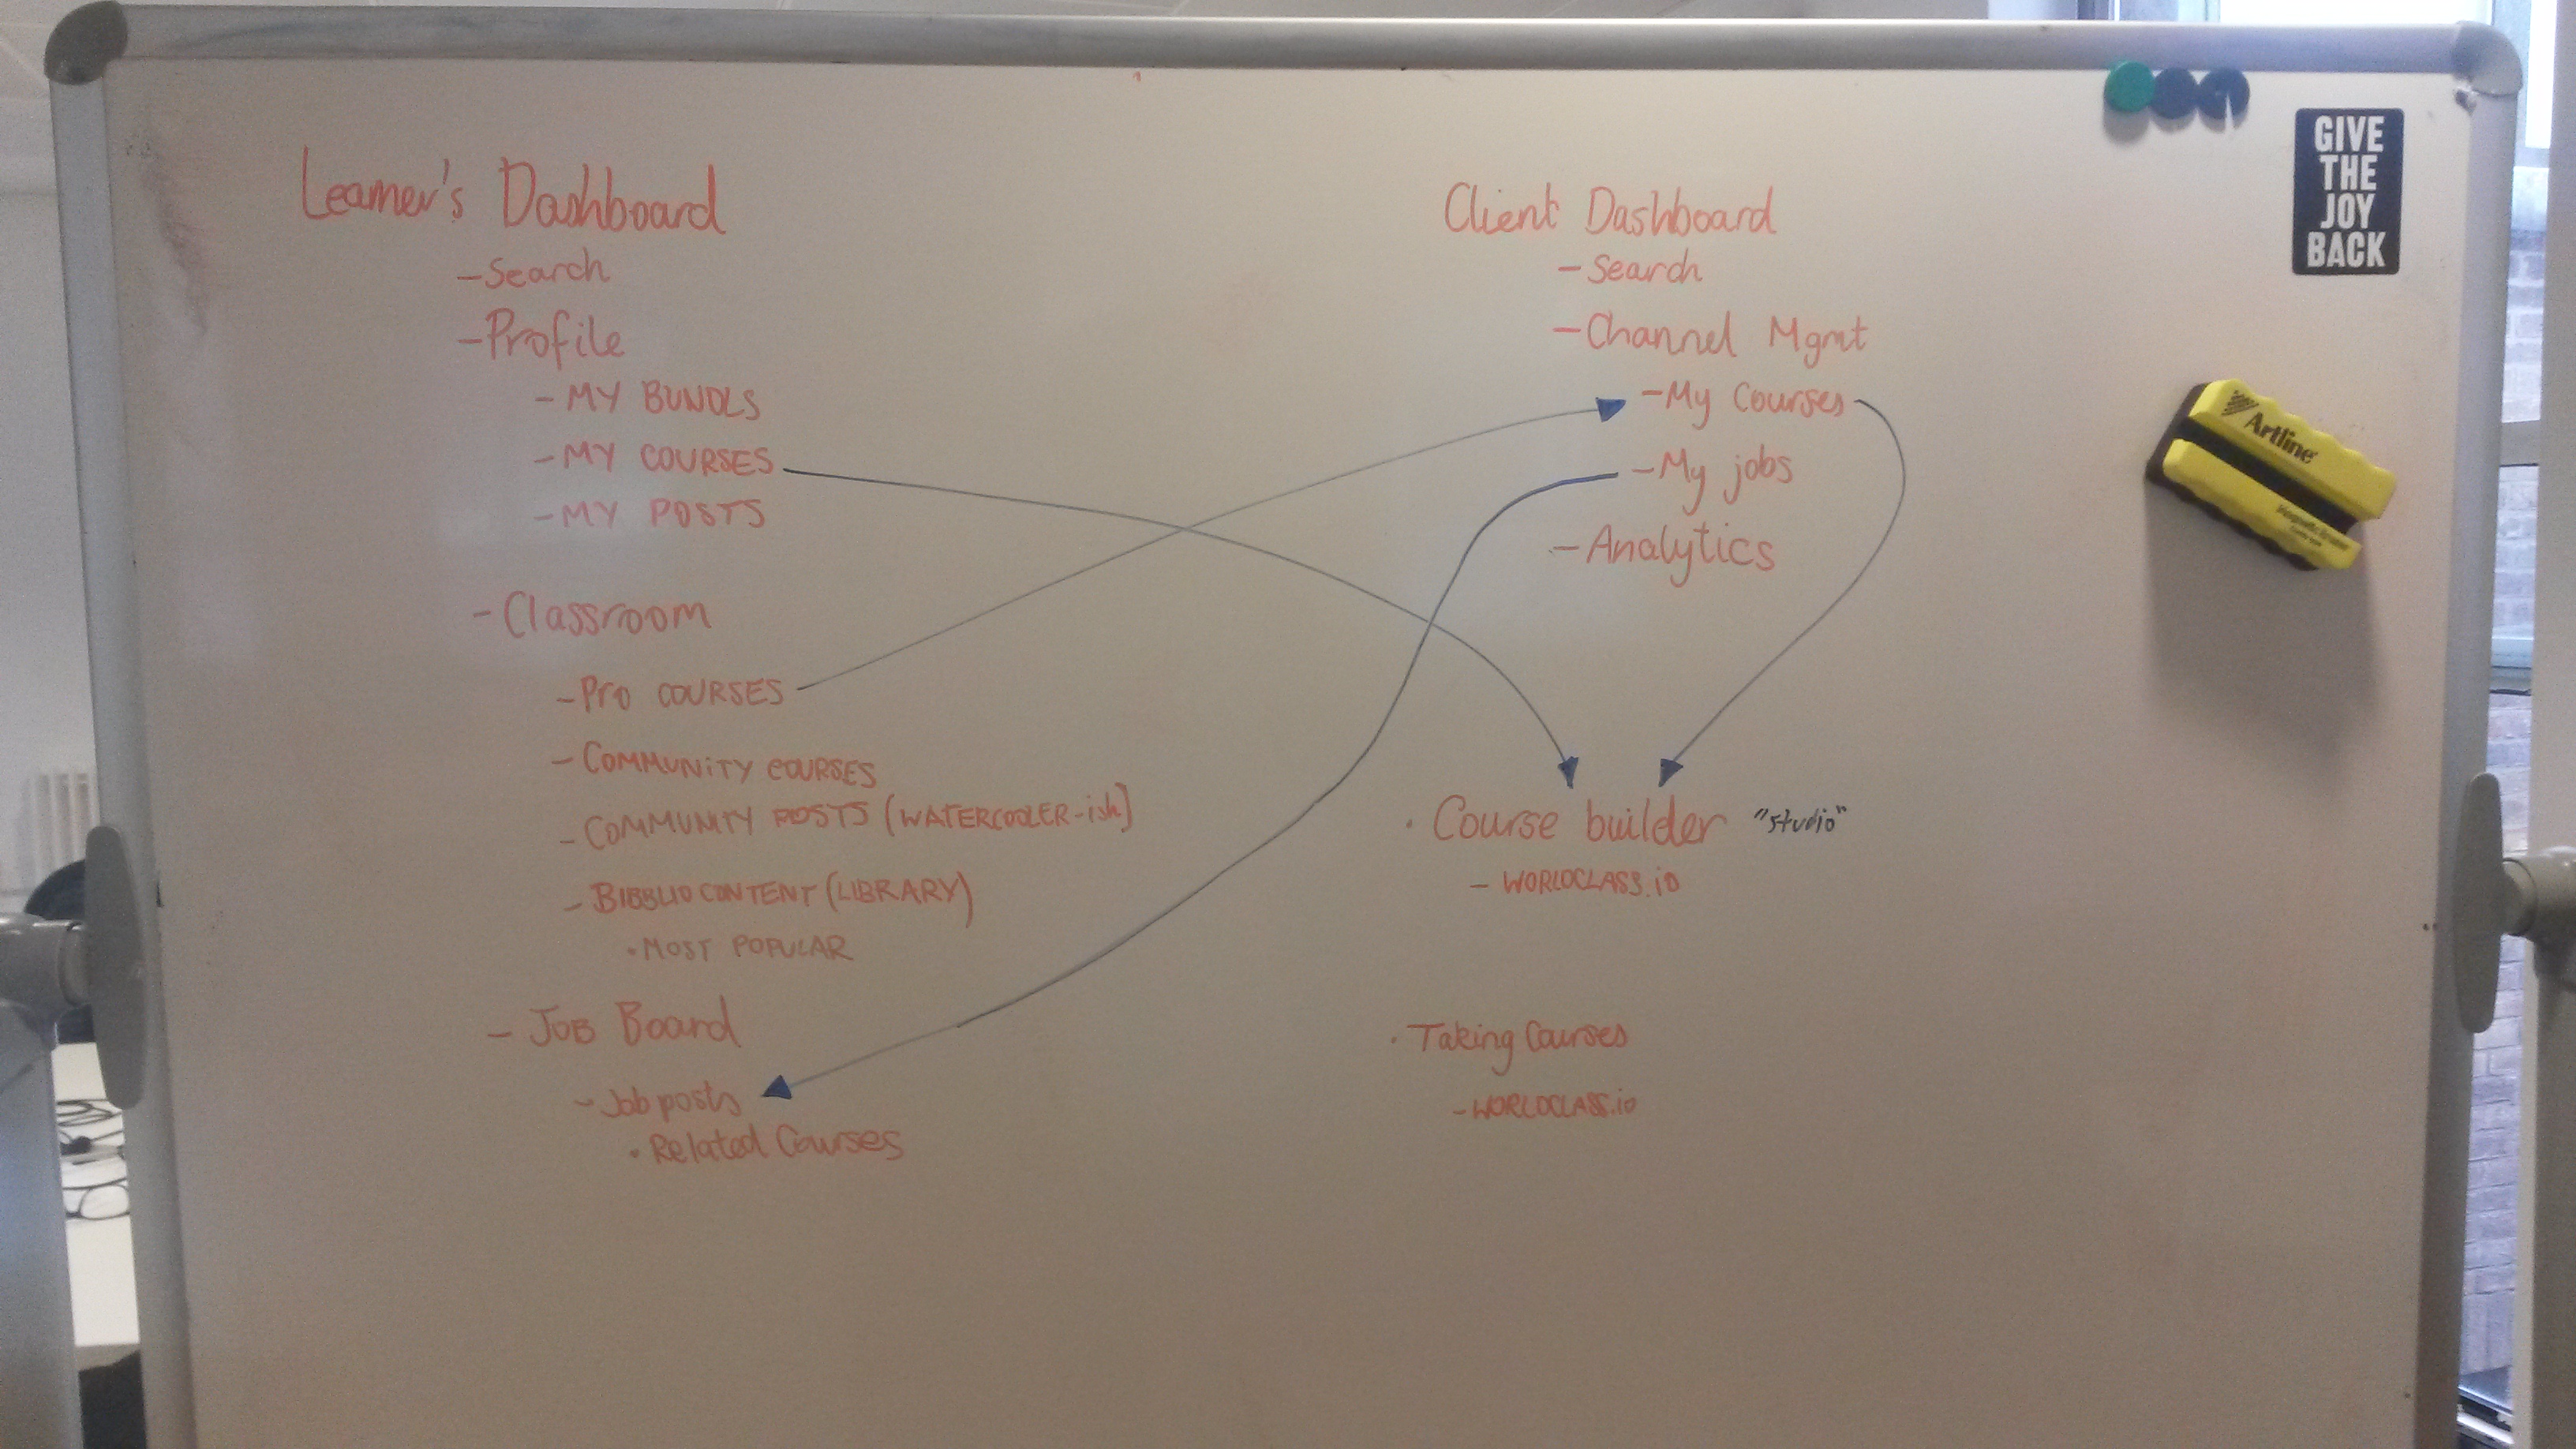 Learner's Dashboard
- Search
- Profile
- MY BUNDLS
- MY COURSES
- MY POSTS
- Classroom
- Pro COURSES
- COMMUNITY COURSES
- COMMUNITY POSTS (WATERCOOLER-ish)
- BIBBLIO CONTENT (LIBRARY)
• MOST POPULAR
- JOB Board
- Job posts
• Related Courses
Client Dashboard
- Search
- Channel Mgmt
- My Courses
- My jobs
- Analytics
• Course builder "studio"
- WORLDCLASS.io
• Taking Courses
- WORLDCLASS.io
GIVE
THE
JOY
BACK
Artline